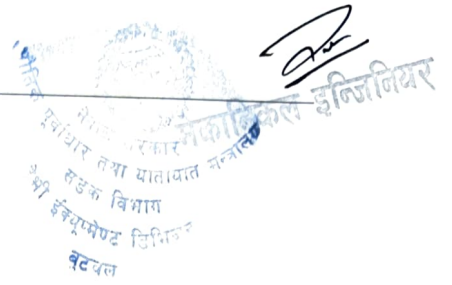 मेकानिकल इन्जिनियर
नेपाल सरकार
भौतिक पूर्वाधार तथा यातायात मन्त्रालय
सडक विभाग
हेभी ईक्यूपमेण्ट डिभिजन
बुटवल